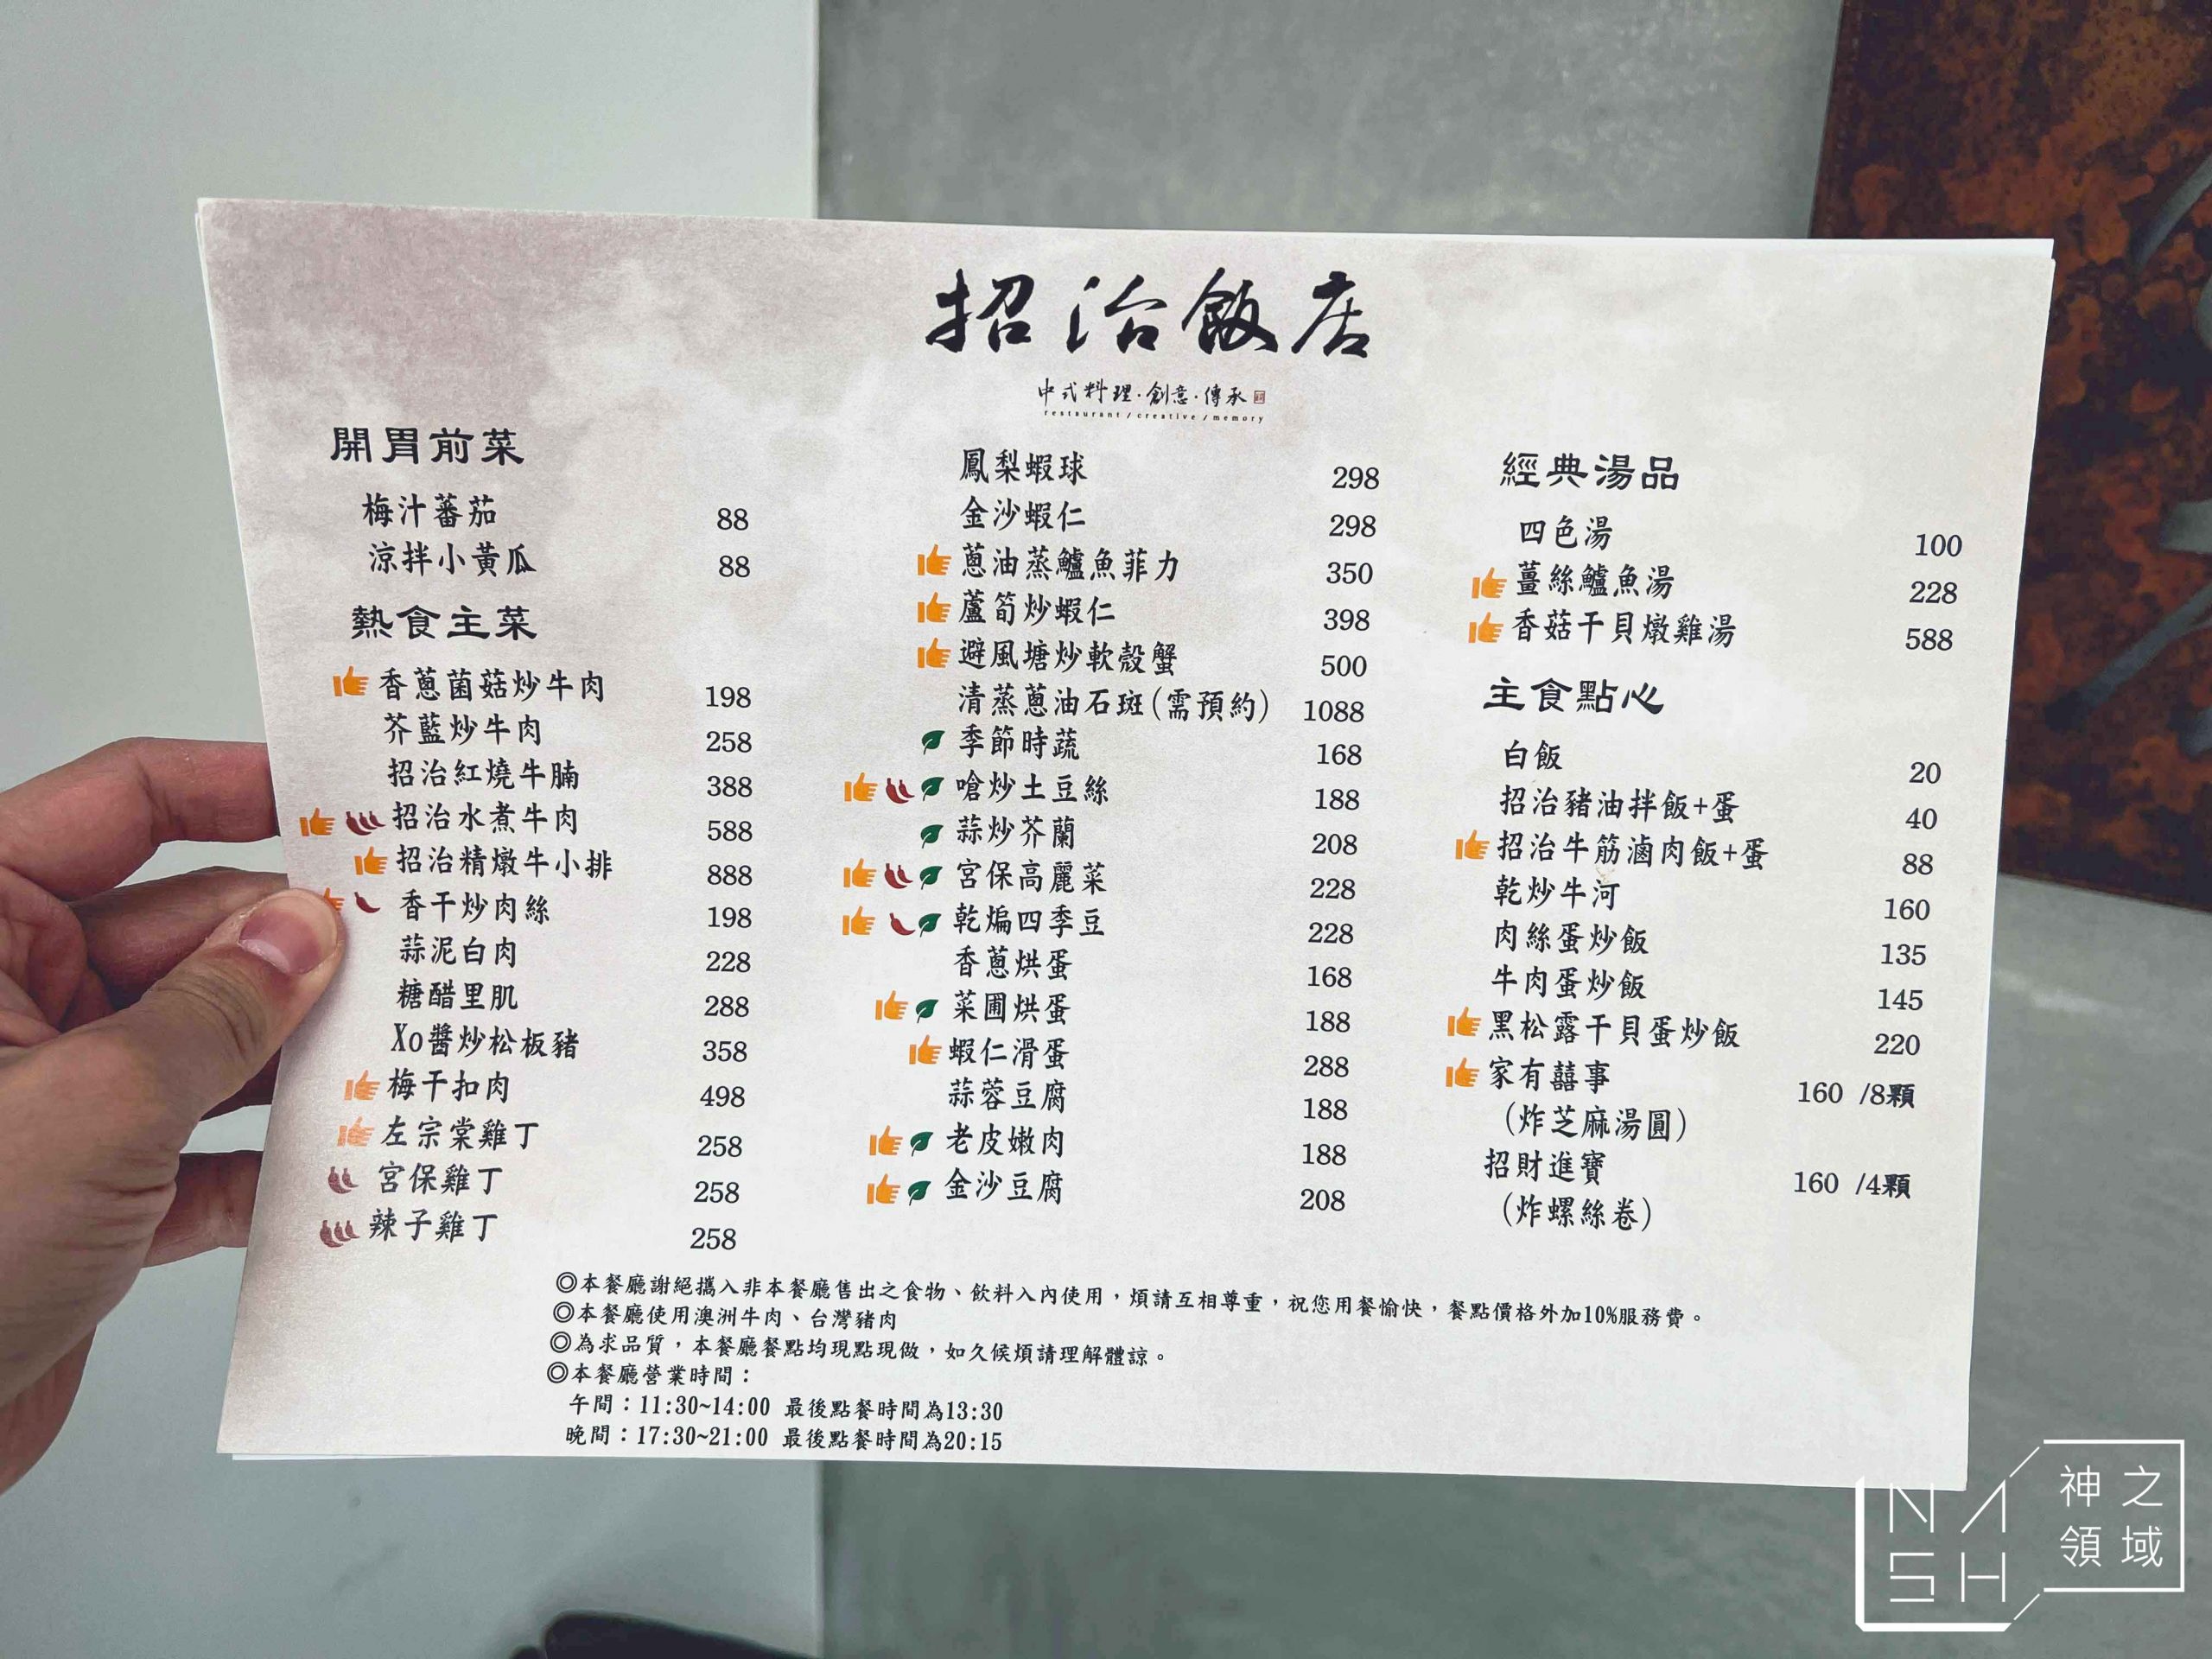 招治飯店
中式料理·創意·傳承
restaurant / creative / memory
開胃前菜
梅汁蕃茄 88
涼拌小黃瓜 88
熱食主菜
香蔥菌菇炒牛肉 198
芥藍炒牛肉 258
招治紅燒牛腩 388
招治水煮牛肉 588
招治精燉牛小排 888
香干炒肉絲 198
蒜泥白肉 228
糖醋里肌 288
Xo醬炒松板豬 358
梅干扣肉 498
左宗棠雞丁 258
宮保雞丁 258
辣子雞丁 258
鳳梨蝦球 298
金沙蝦仁 298
蔥油蒸鱸魚菲力 350
蘆筍炒蝦仁 398
避風塘炒軟殼蟹 500
清蒸蔥油石斑(需預約) 1088
季節時蔬 168
嗆炒土豆絲 188
蒜炒芥蘭 208
宮保高麗菜 228
乾煸四季豆 228
香蔥烘蛋 168
菜圃烘蛋 188
蝦仁滑蛋 288
蒜蓉豆腐 188
老皮嫩肉 188
金沙豆腐 208
經典湯品
四色湯 100
薑絲鱸魚湯 228
香菇干貝燉雞湯 588
主食點心
白飯 20
招治豬油拌飯+蛋 40
招治牛筋滷肉飯+蛋 88
乾炒牛河 160
肉絲蛋炒飯 135
牛肉蛋炒飯 145
黑松露干貝蛋炒飯 220
家有囍事 160 /8顆
(炸芝麻湯圓)
招財進寶 160 /4顆
(炸螺絲卷)
◎本餐廳謝絕攜入非本餐廳售出之食物、飲料入內使用，煩請互相尊重，祝您用餐愉快，餐點價格外加10%服務費。
◎本餐廳使用澳洲牛肉、台灣豬肉
◎為求品質，本餐廳餐點均現點現做，如久候煩請理解體諒。
◎本餐廳營業時間：
午間：11:30~14:00 最後點餐時間為13:30
晚間：17:30~21:00 最後點餐時間為20:15
NASH
神之領域